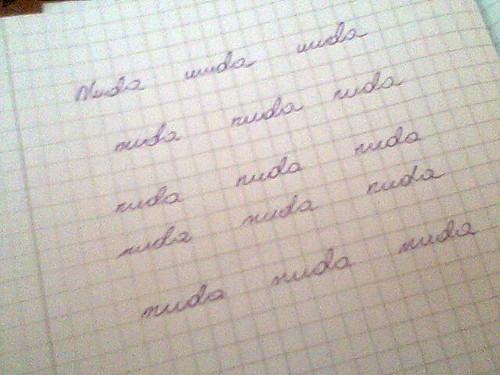 Nuda nuda nuda
nuda nuda nuda
nuda nuda nuda
nuda nuda nuda
nuda nuda nuda